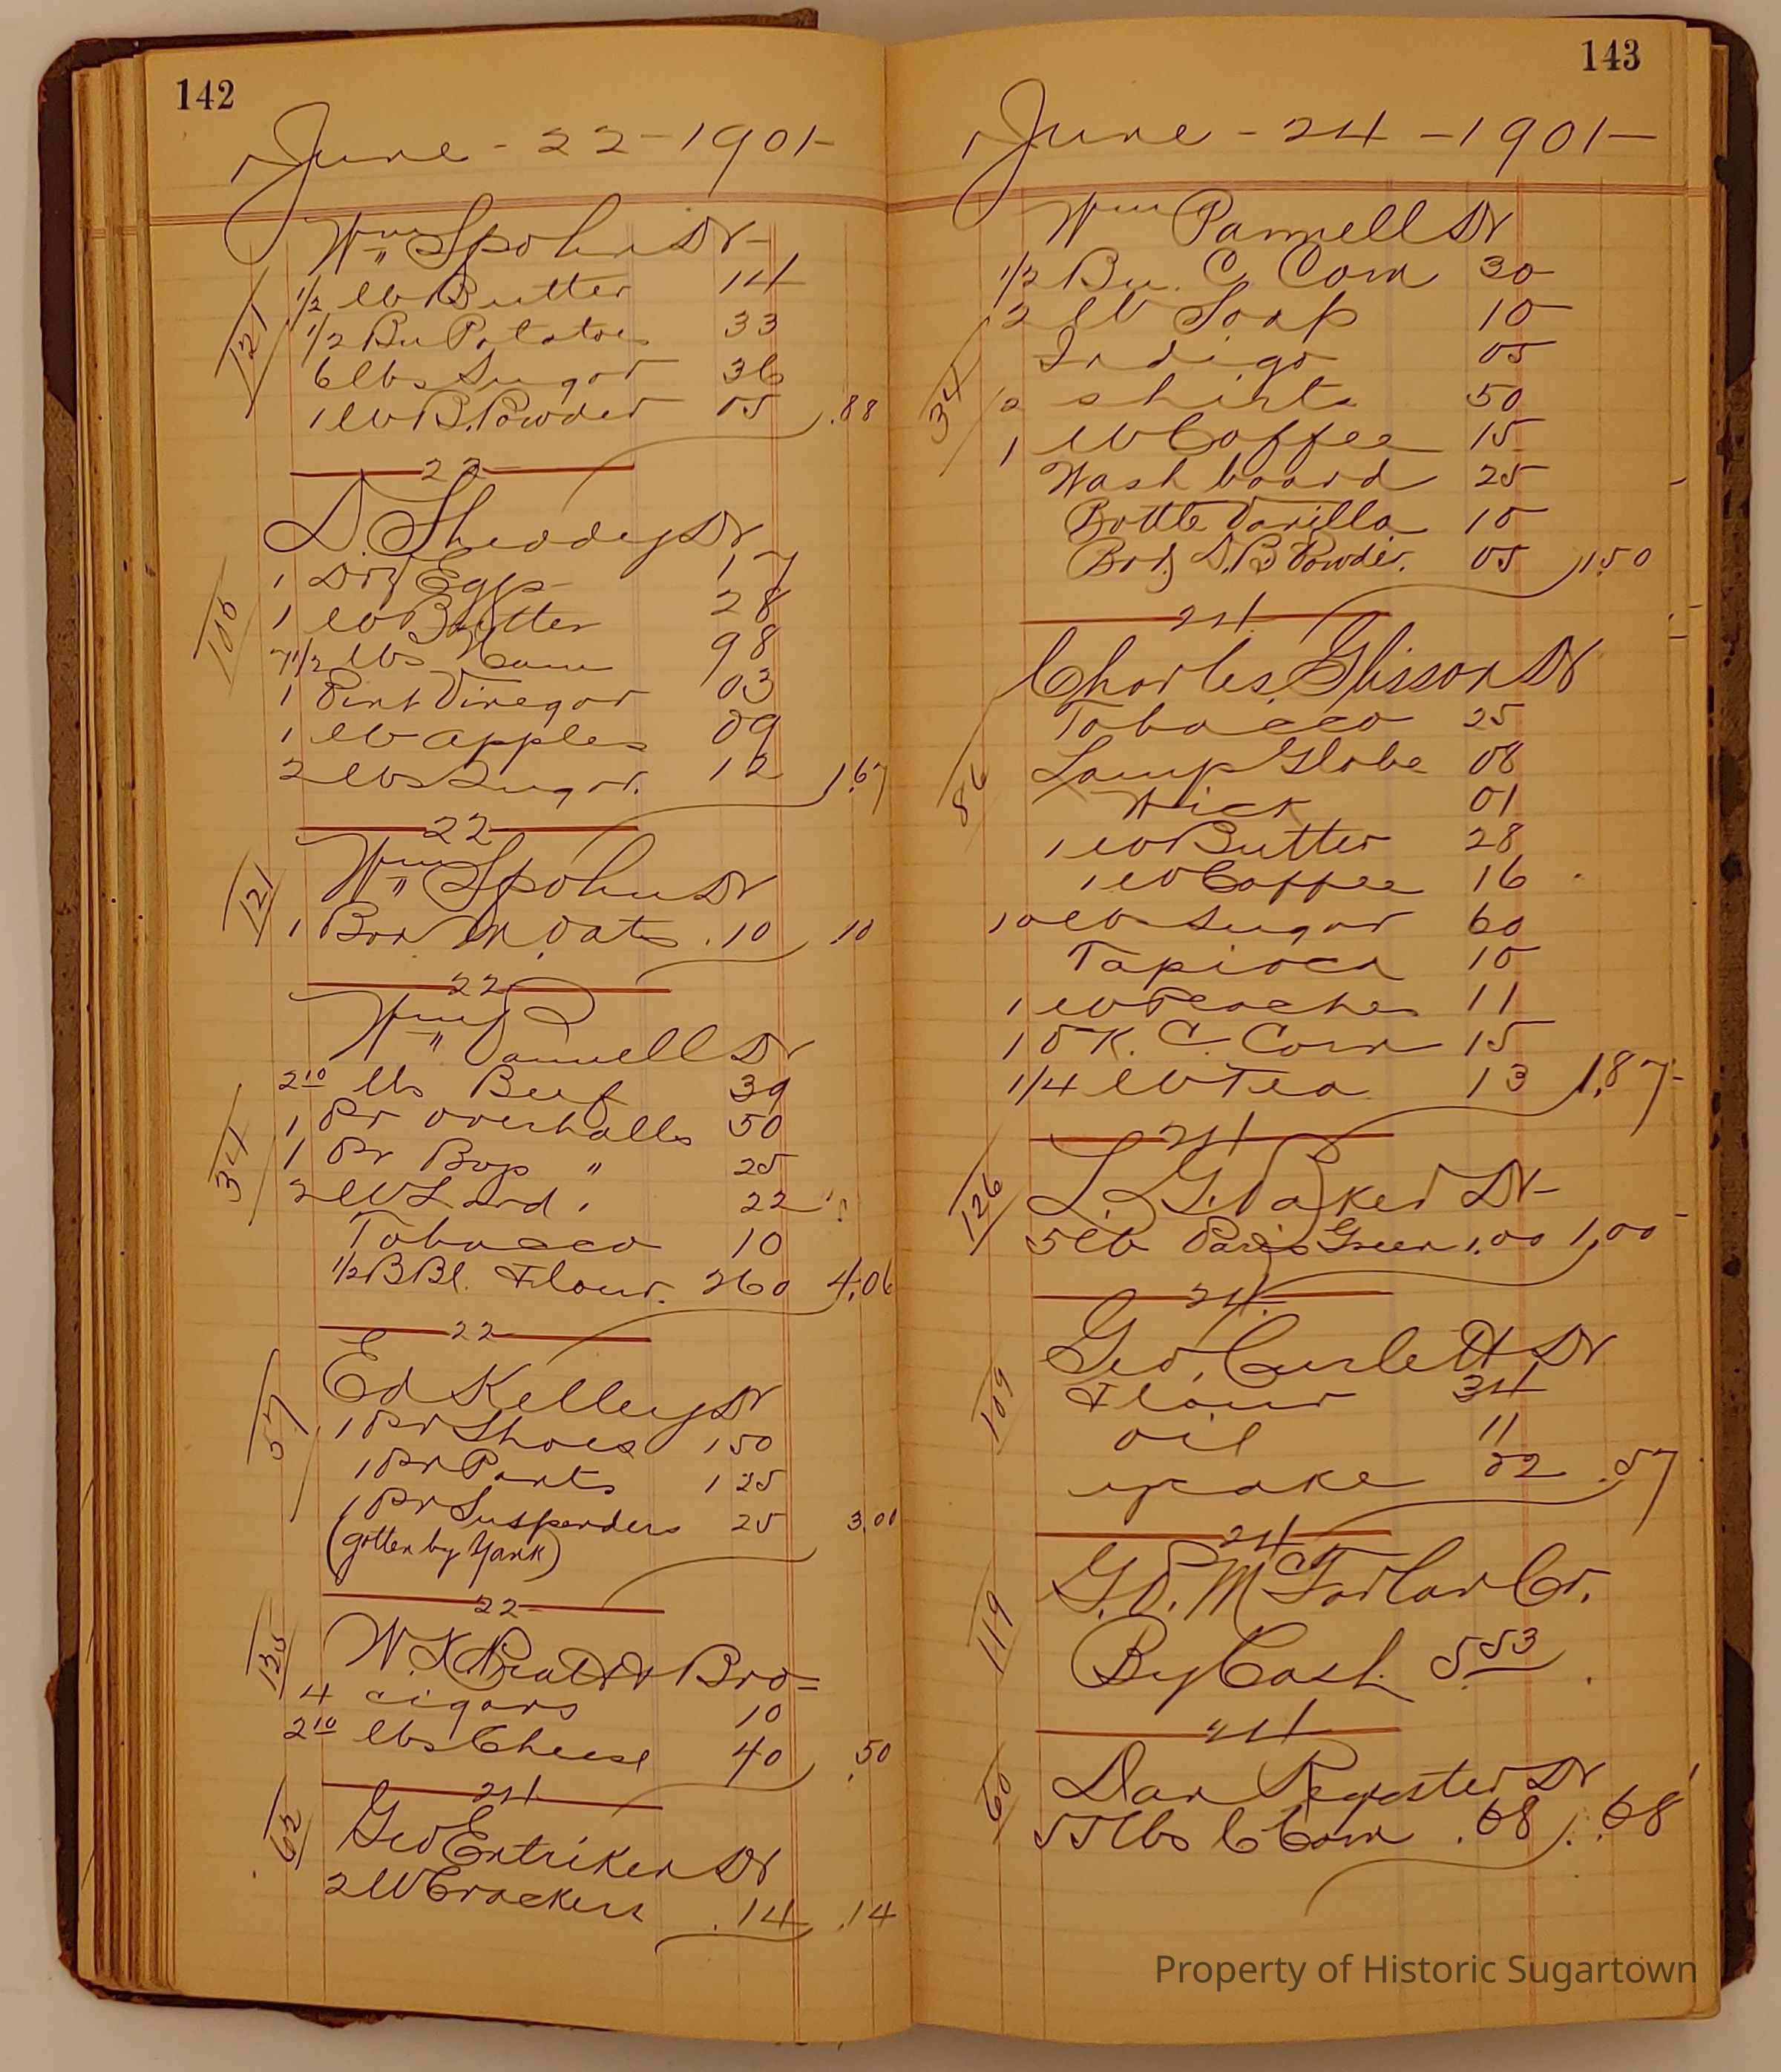 142
June - 22 - 1901 -
Wm Spohn Dr -
121
1/2 lb Butter 14
1/2 Bu Potatoes 33
6 lbs Sugar 36
1 lb B. Powder 05 .88
22
D. Sheddey Dr
1 Doz Eggs 17
1 lb Butter 28
7 1/2 lbs Ham 98
1 Pint Vinegar 03
1 lb apples 09
2 lbs Sugar. 12 1.67
22
121
Wm Spohn Dr
1 Box M. Oats .10 .10
22
Wm Pannell Dr
34
2 10 lbs Beef 39
1 Pr overhalls 50
1 Pr Boys " 25
2 lb Lard . 22
Tobacco 10
1/2 BBl. Flour. 260 4.06
22
57
Ed Kelley Dr
1 Pr Shoes 150
1 Pr Pants 125
1 Pr Suspenders 25 3.00
(gotten by Yank)
22
135
W. & Bro =
4 cigars 10
2 10 lbs Cheese 40 .50
24
62
Geo Entriken Dr
2 lb Crackers .14 .14
143
June - 24 - 1901 -
Wm Pannell Dr
34
1/2 Bu. C. Corn 30
2 lb Soap 10
Indigo 05
2 shirts 50
1 lb Coffee 15
Wash board 25
Bottle Vanilla 10
D. B. Powder. 05 1.50
24
86
Charles Glisson Dr
Tobacco 25
Lamp Globe 08
Wick 01
1 lb Butter 28
1 lb Coffee 16
10 lb Sugar 60
Tapioca 10
1 lb Peaches 11
1 PK. C. Corn 15
1/4 lb Tea 13 1.87
24
126
L. G. Baker Dr -
5 lb Paris Green 1.00 1.00
24
109
Geo. Curlett Dr
Flour 34
oil 11
cake 12 .57
24
119
G. P. McFarlan Cr.
By Cash. 5.53
24
60
Dan Regester Dr
55 lbs C Corn .68 .68
Property of Historic Sugartown